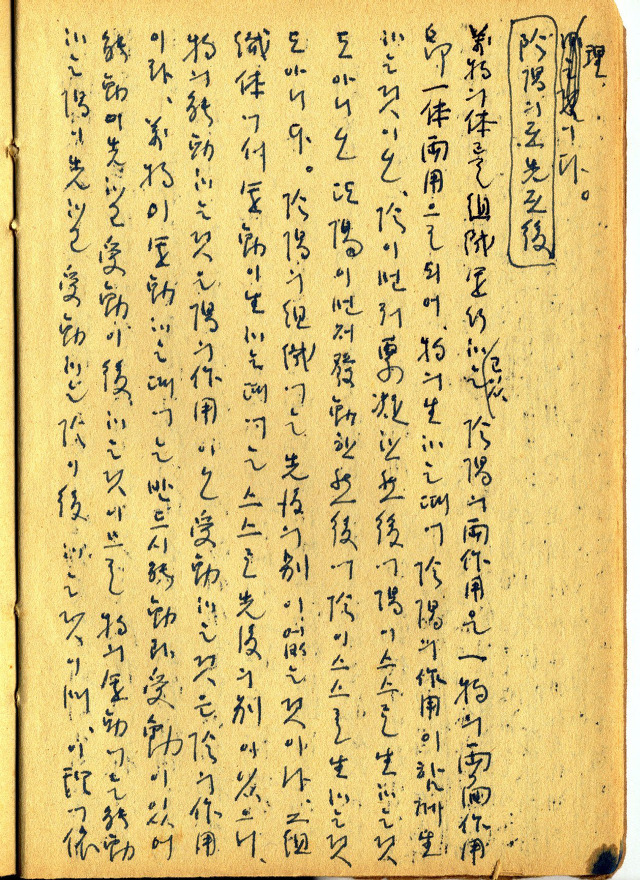 理이다。
陰陽의 无先无後
萬物의 体를 組織運行하는 陰陽의 両作用은 一物의 両面作用
即 一体両用으로 되어、物의 生하는 때에 陰陽의 作用이 함께 生
하는 것이오、陰이 먼저 専凝한 然後에 陽이 스스로 生하는 것
도 아니오 또 陽이 먼저 發動한 然後에 陰이 스스로 生하는 것
도 아니다。陰陽의 組織에는 先後의 別이 없는 것이나、그 組
織体에서 運動이 生하는 때에는 스스로 先後의 別이 있으니、
物의 能動하는 것은 陽의 作用이오 受動하는 것은 陰의 作用
이라、萬物이 運動하는 때에는 반드시 能動과 受動이 있어
能動이 先하고 受動이 後하는 것이므로 物의 運動에는 能動
하는 陽이 先하고 受動하는 陰이 後하는 것이며、이 理에 依